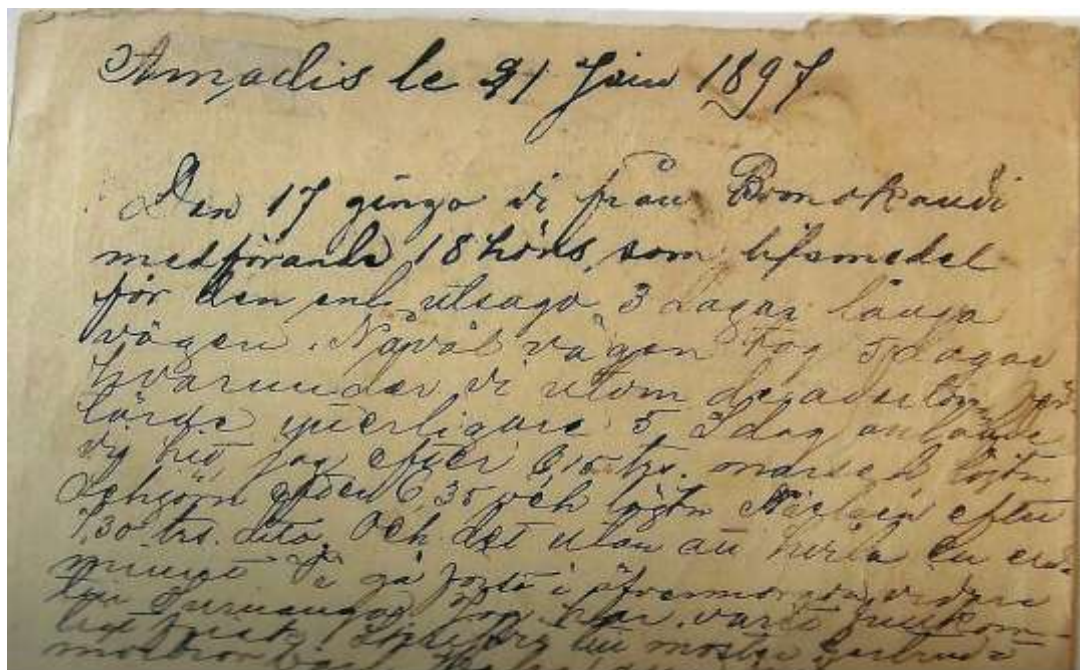 Amadis le 21 Juin 1897.
Den 17 gingo vi från Bomokandi
medförande 18 höns, som lifsmedel
för den enl. utsago 3 dagar långa
vägen. Nåväl vägen tog 5 dagar
hvarunder vi utom de aderton för
tärde ytterligare 5. I dag anlände
vi hit, jag efter 6,15 trs. marsch, löjtn.
efter 6,35 och löjtn. efter
7,30 trs. dito. Och det utan att hvila en enda
minut. Vi gå fort i öfvermorgon vidare
Jag har varit